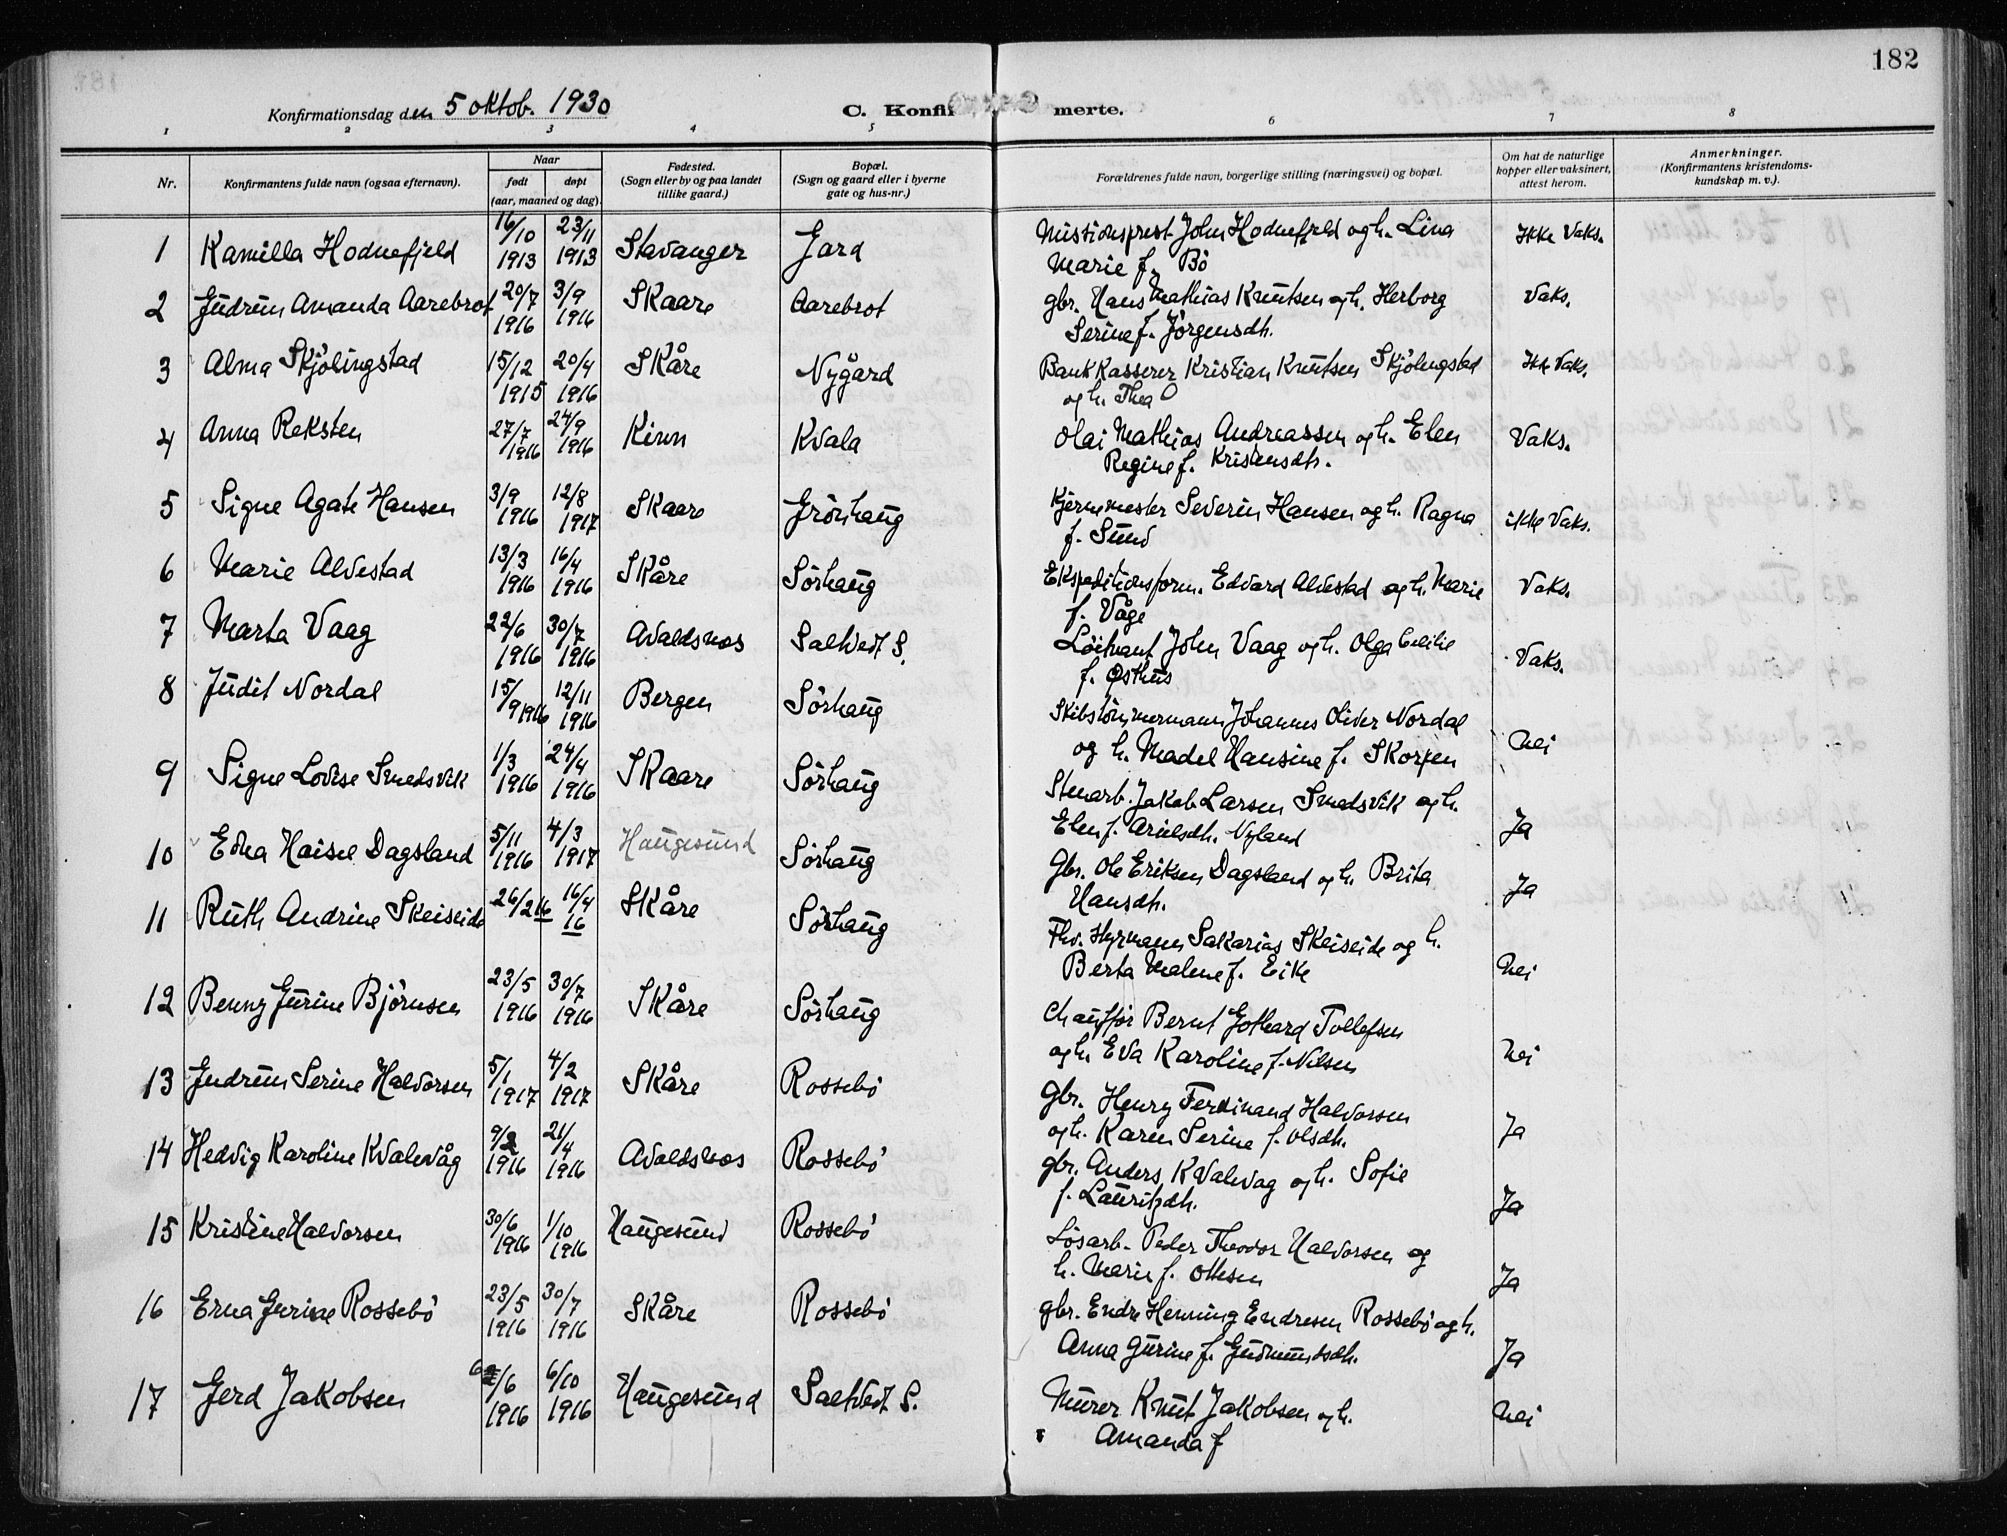 182
Konfirmationsdag den 5 oktob. 1930
C. Konfirmerte.
1 2 3 4 5 6 7 8
Nr.
Konfirmantens fulde navn (ogsaa efternavn).
Naar
født døpt
(aar, maaned og dag).
Fødested.
(Sogn eller by og paa landet
tillike gaard.)
Bopæl.
(Sogn og gaard eller i byerne
gate og hus-nr.)
Forældrenes fulde navn, borgerlige stilling (næringsvei) og bopæl.
Om hat de naturlige
kopper eller vaksinert,
attest herom.
Anmerkninger.
(Konfirmantens kristendoms-
kundskap m. v.).
1 Kamilla Hodnefjeld 16/10 1913 23/11 1913 Stavanger Gard Missionsprest John Hodnefjeld og h. Lina Ikke Vaks.
Marie f. Bö
2 Gudrun Amanda Aarebrot 20/7 1916 3/9 1916 Skaare Aarebrot gbr. Hans Mathias Knutsen og h. Herborg Vaks.
Serine f. Jörgensdh.
3 Alma Skjölingstad 15/12 1915 20/4 1916 Skåre Nygård Bank Kasserer Kristian Knutsen Skjölingstad Ikke Vaks.
og h. Thea
4 Anna Reksten 27/7 1916 24/9 1916 Kinn Kvala Olai Mathias Andreassen og h. Elen Vaks.
Regine f. Kristensdh.
5 Signe Agate Hansen 3/9 1916 12/8 1917 Skaare Grönhaug Kjernemester Severin Hansen og h. Ragna ikke Vaks.
f. Sund
6 Marie Alvestad 13/3 1916 16/4 1916 Skåre Sörhaug Ekspeditionsform. Edvard Alvestad og h. Marie Vaks.
f. Våge
7 Marta Vaag 22/6 1916 30/7 1916 Avaldsnes Saltvedt S. Löitnant John Vaag og h. Olga Cecilie Vaks.
f. Østhus
8 Judit Nordal 15/9 1916 12/11 1916 Bergen Sörhaug Skibstömmermann Johannes Oliver Nordal Nei
og h. Madel Hansine f. Skorpen
9 Signe Lovise Smedsvik 1/3 1916 24/4 1916 Skaare Sörhaug Stenarb. Jakob Larsen Smedsvik og h. Ja
Elen f. Arielsdh. Nyland
10 Edna Haisel Dagsland 5/11 1916 4/3 1917 Haugesund Sörhaug Gbr. Ole Eriksen Dagsland og h. Brita Ja
Hansdh.
11 Ruth Andrine Skeiseide 26/2 16 16/4 16 Skåre Sörhaug Fhv. styrmann Sakarias Skeiseide og h.
Berta Malene f. Eike Nei
12 Benny Gurine Björnsen 23/5 1916 30/7 1916 Skåre Sörhaug Chaufför Bernt Gothard Tollefsen
og h. Eva Karoline f. Nilsen Nei
13 Gudrun Serine Halvorsen 5/1 1917 4/2 1917 Skåre Rossebö Gbr. Henry Ferdinand Halvorsen
og h. Karen Serine f. Olsdh. Ja
14 Hedvig Karoline Kvalevåg 9/2 1916 21/4 1916 Avaldsnes Rossebö gbr. Anders Kvalevag og h. Sofie
f. Lauritzdh. Ja
15 Kristine Halvorsen 30/6 1916 1/10 1916 Haugesund Rossebö Lösarb. Peder Theodor Halvorsen og
h. Marie f. Ottesen Ja
16 Erna Gurine Rossebö 23/5 1916 30/7 1916 Skåre Rossebö gbr. Endre Henning Endresen Rossebö og h.
Anna Gurine f. Gudmundsdh. Ja
17 Gerd Jakobsen 6/6 1916 6/10 1916 Haugesund Saltvedt S. Murer Knut Jakobsen og h. Nei
Amanda f